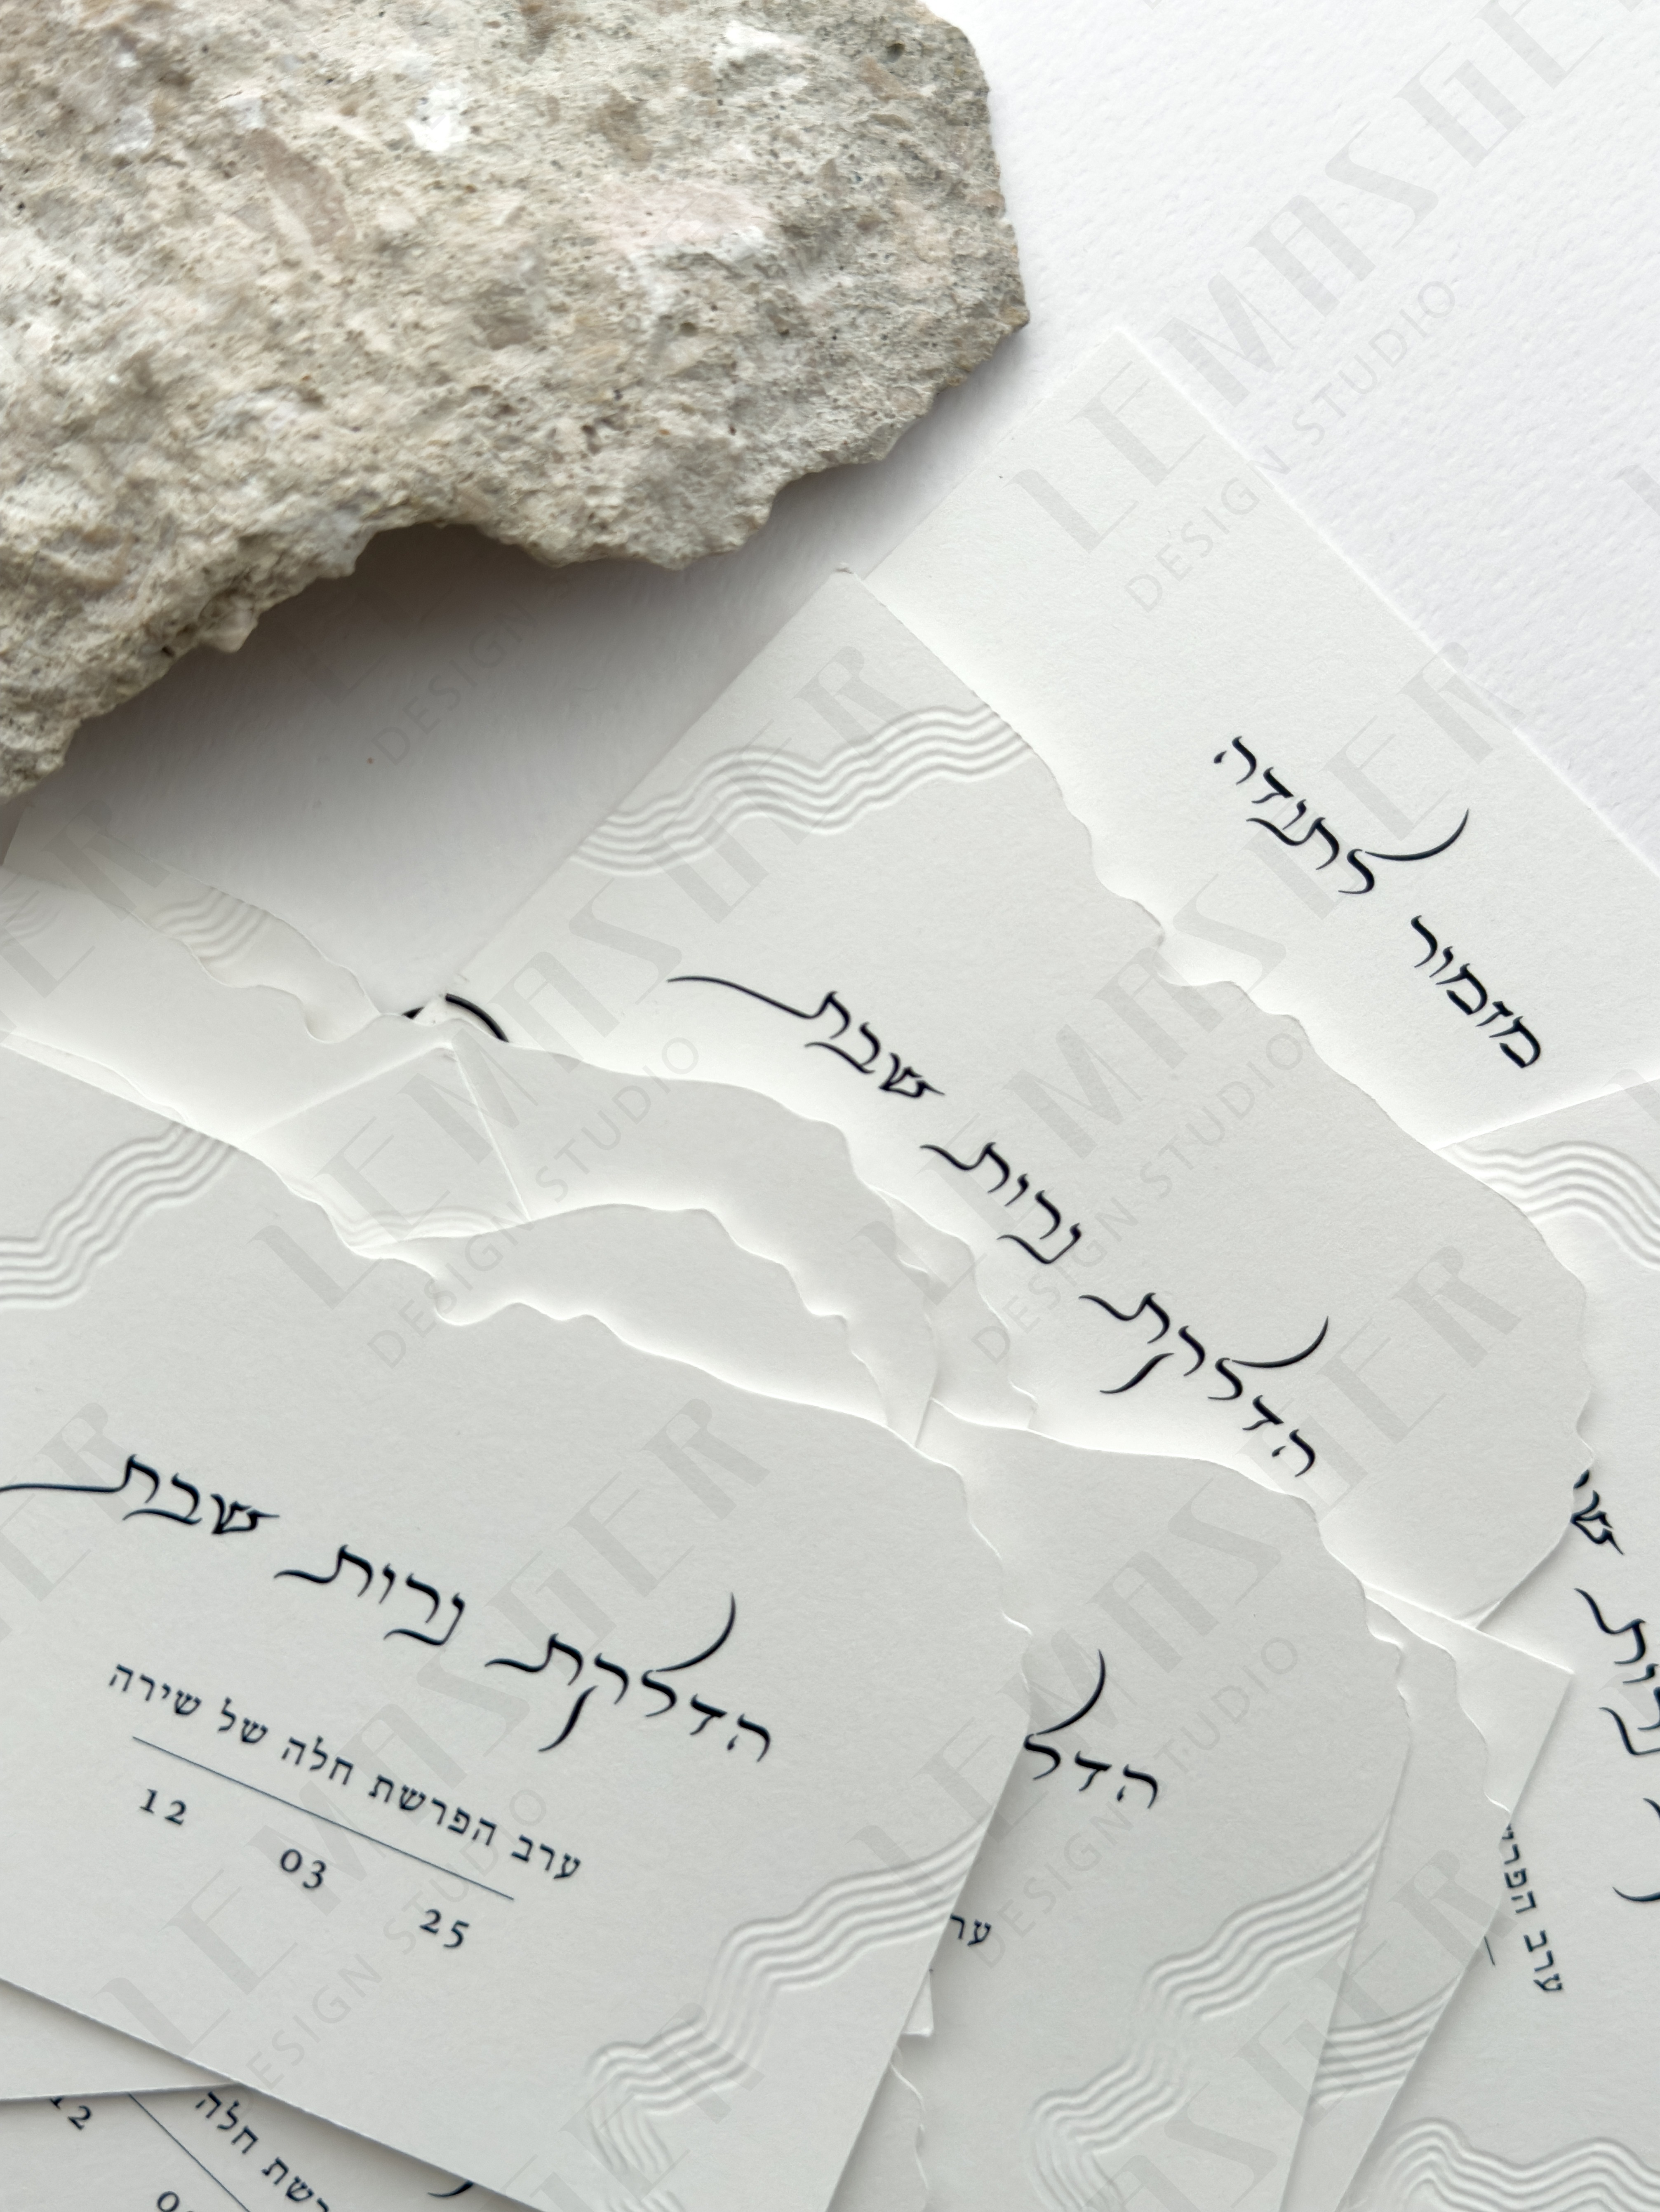 מזמור לתודה
הדלקת נרות שבת
הדלקת נרות שבת
ערב הפרשת חלה של שירה
12 03 25
הדל
ער
ערב הפרי
12
רשת חלה
LEMASHER
DESIGN STUDIO